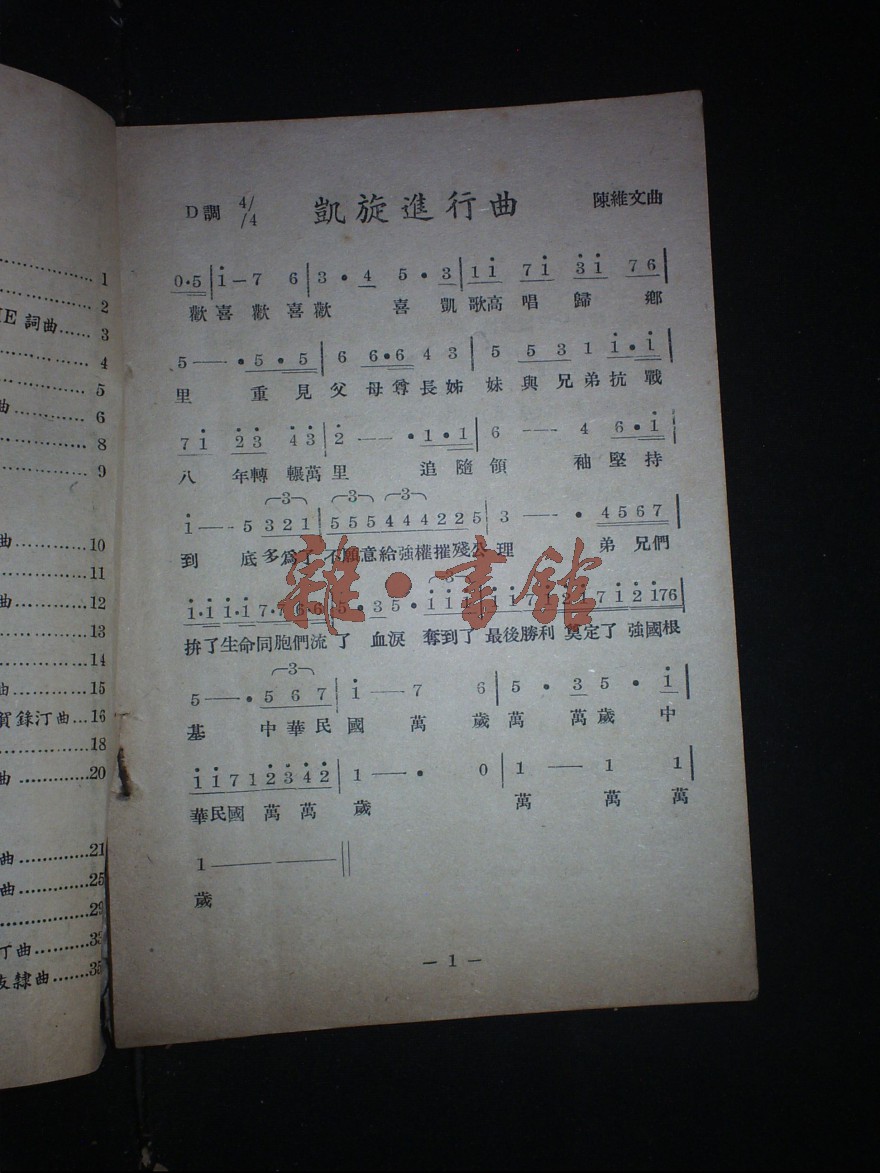 1
2
IE 詞曲......3
4
5
曲 6
8
9
曲 10
11
曲 12
13
14
曲 15
賀錄汀曲...16
18
曲 20
曲............21
曲............25
29
丁曲
友隸曲
D調 4/4 凱旋進行曲 陳維文曲
0·5|i－7 6|3·4 5·3|1i 7i 3̇i 76|
歡喜歡喜歡 喜凱歌高唱歸鄉
5——·5·5|6 6·6 4 3|5 5 3 1 i·i|
里 重見父母尊長姊妹與兄弟抗戰
7i 2̇3̇ 4̇3̇|2̇——·i·i|6——4 6·i|
八年轉輾萬里 追隨領 袖堅持
i——5 321|555444225|3——·4567|
到 底多為了不願意給強權摧殘公理 弟兄們
i·i i·i 7·7 6·6|5·3 5·iii|ii7i2̇i7i2̇i76
拚了生命同胞們流了 血淚 奪到了最後勝利奠定了強國根
5——·567|i——7 6|5·3 5·i|
基 中華民國 萬 歲萬 萬歲 中
ii712̇3̇4̇2̇|1——·0|1——1 1|
華民國萬萬 歲 萬 萬 萬
1————||
歲
雜·書館
— 1 —